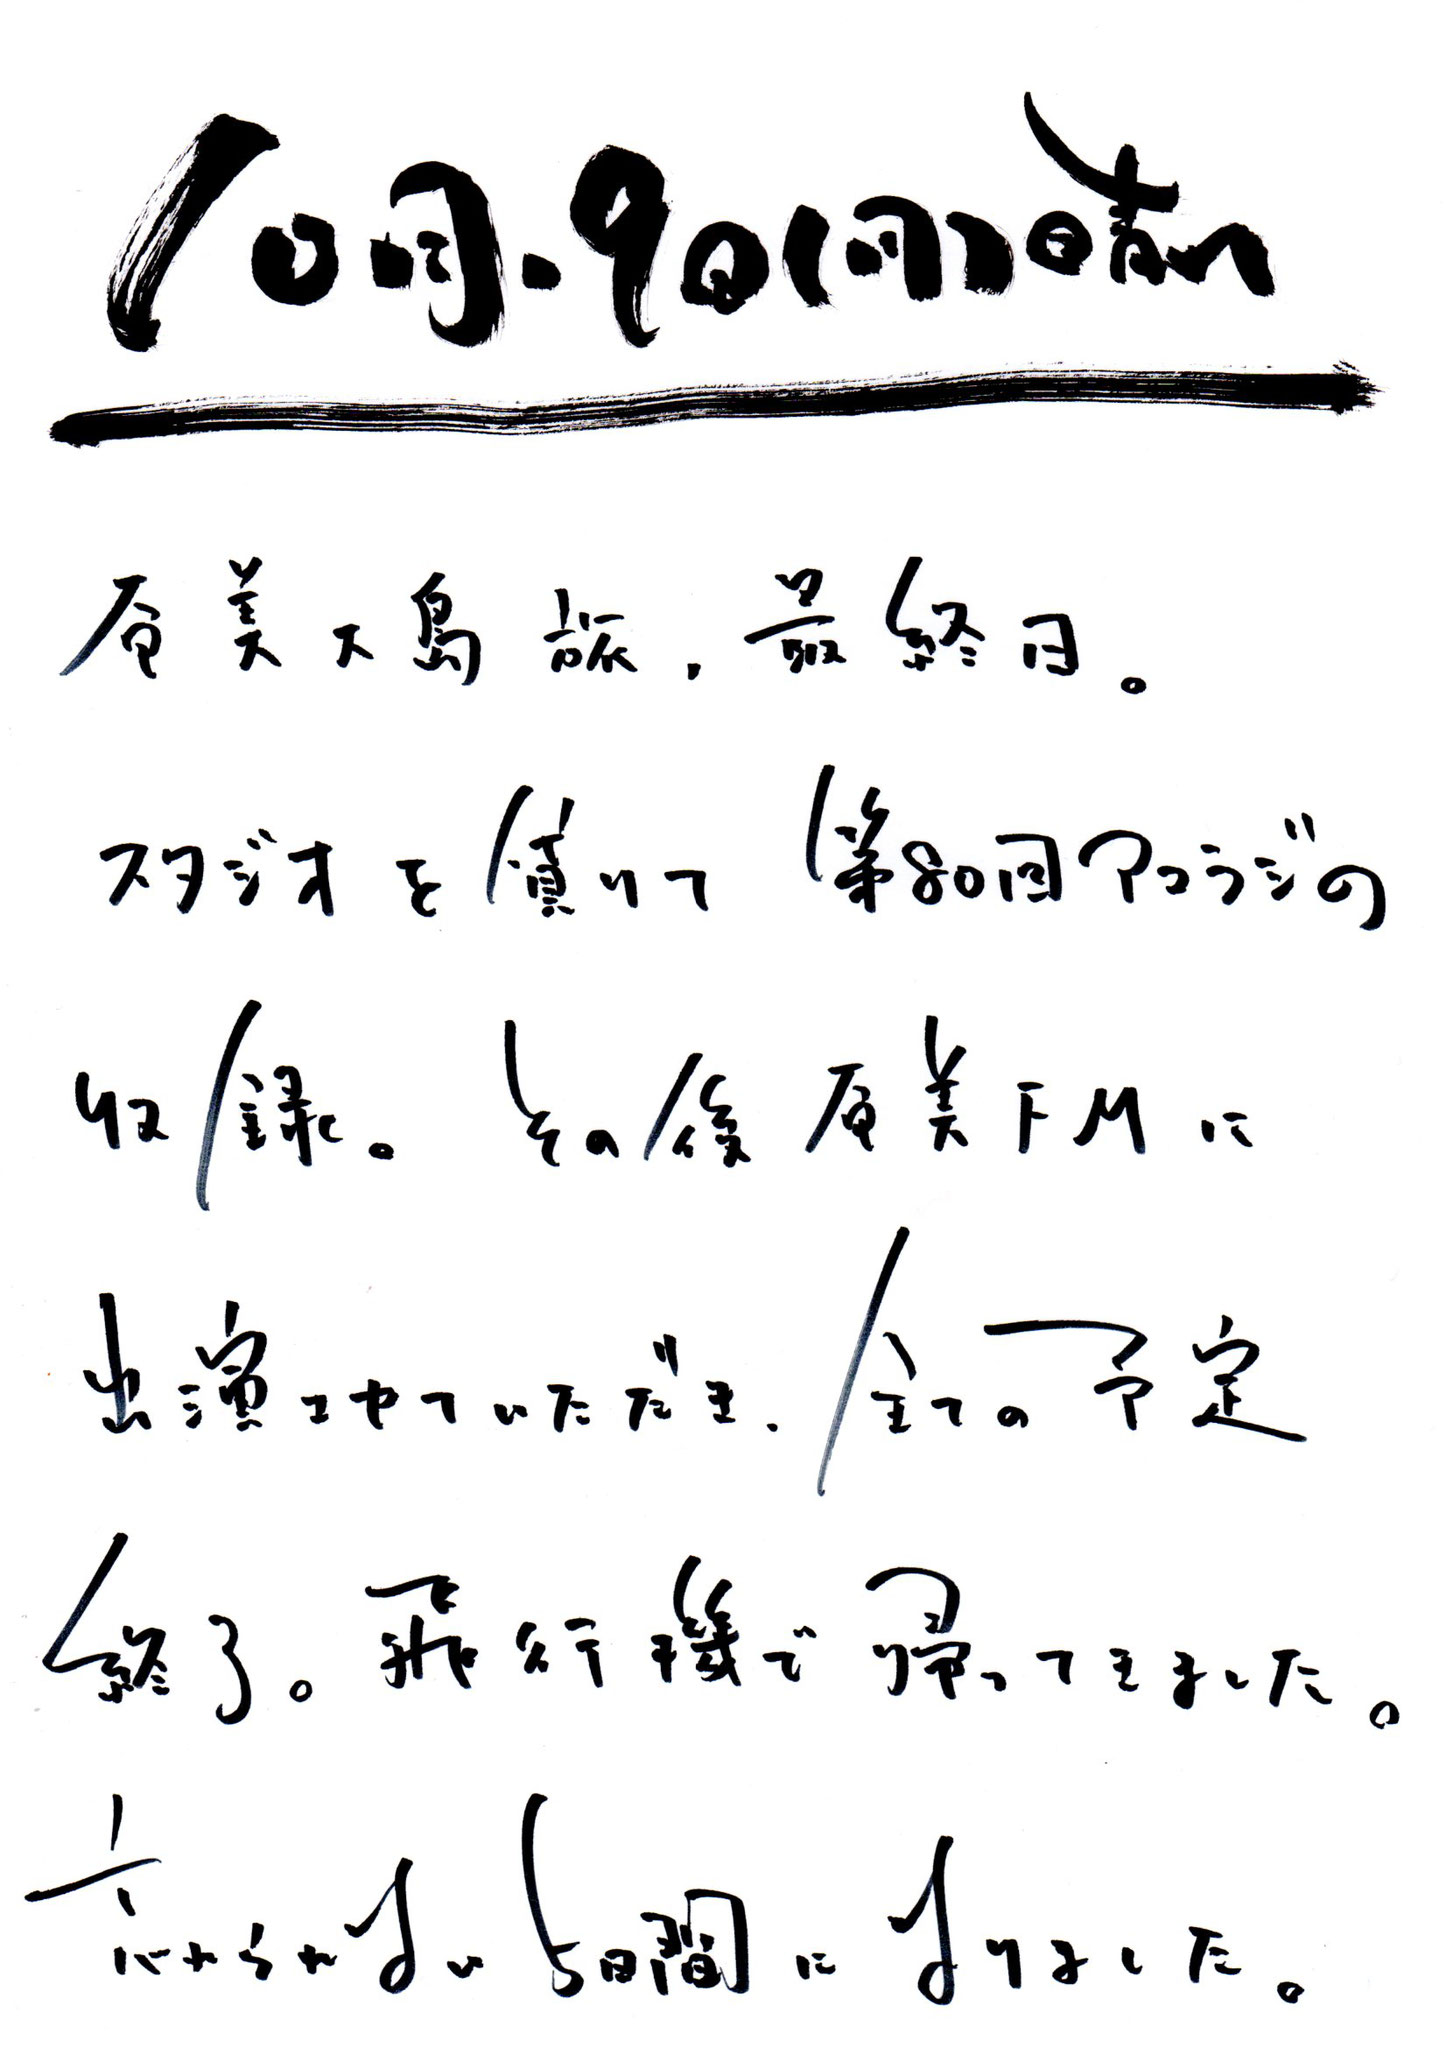 10月.9日(月)晴れ
奄美大島旅,最終日。
スタジオを借りて 第80回アコラジの
収録。その後奄美FMに
出演させていただき、全ての予定
終了。飛行機で帰ってきました。
忘れられない5日間になりました。